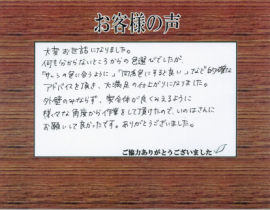 お客様の声
大変お世話になりました。
何も分からないところからの色選びでしたが、
"サッシの色に合うように" "同系色にすると良い" など的確な
アドバイスを頂き、大満足の仕上がりになりました。
外壁のみならず、家全体が良くみえるように
様々な角度から作業をして頂けたので、いのはさんに
お願いして良かったです。ありがとうございました。
ご協力ありがとうございました